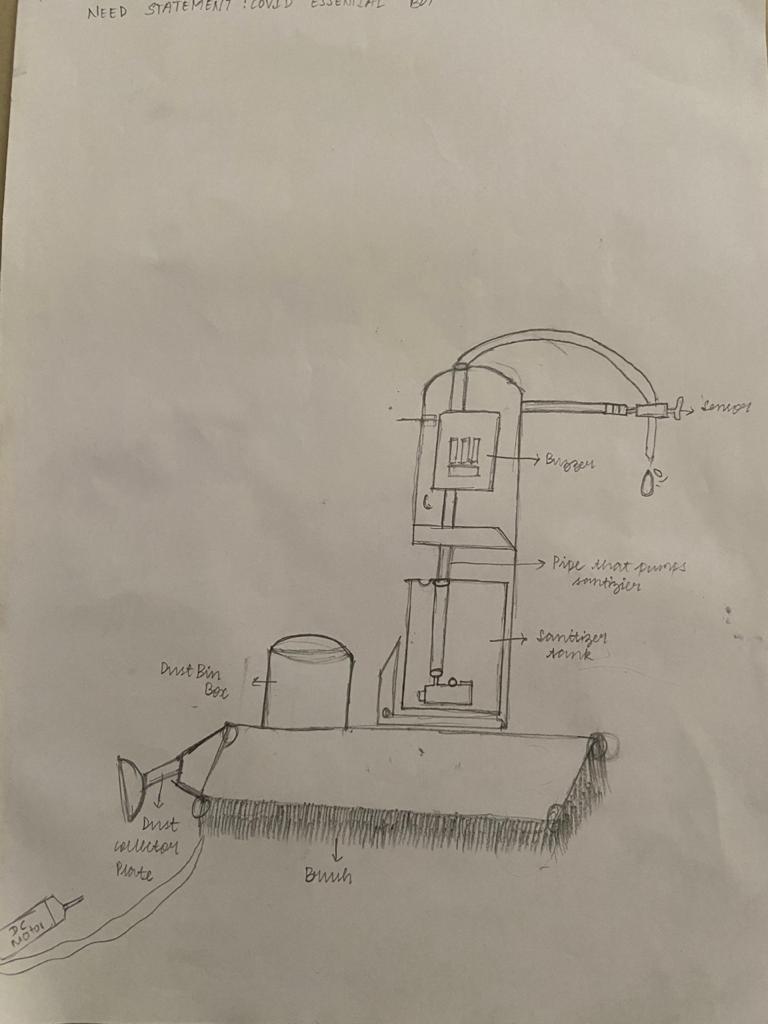 NEED STATEMENT : COVID ESSENTIAL BOT
Sensor
Buzzer
Pipe that pumps
sanitizier
Sanitizer
tank
Dust Bin
Box
Dust
collector
Plate
Brush
DC
Motor